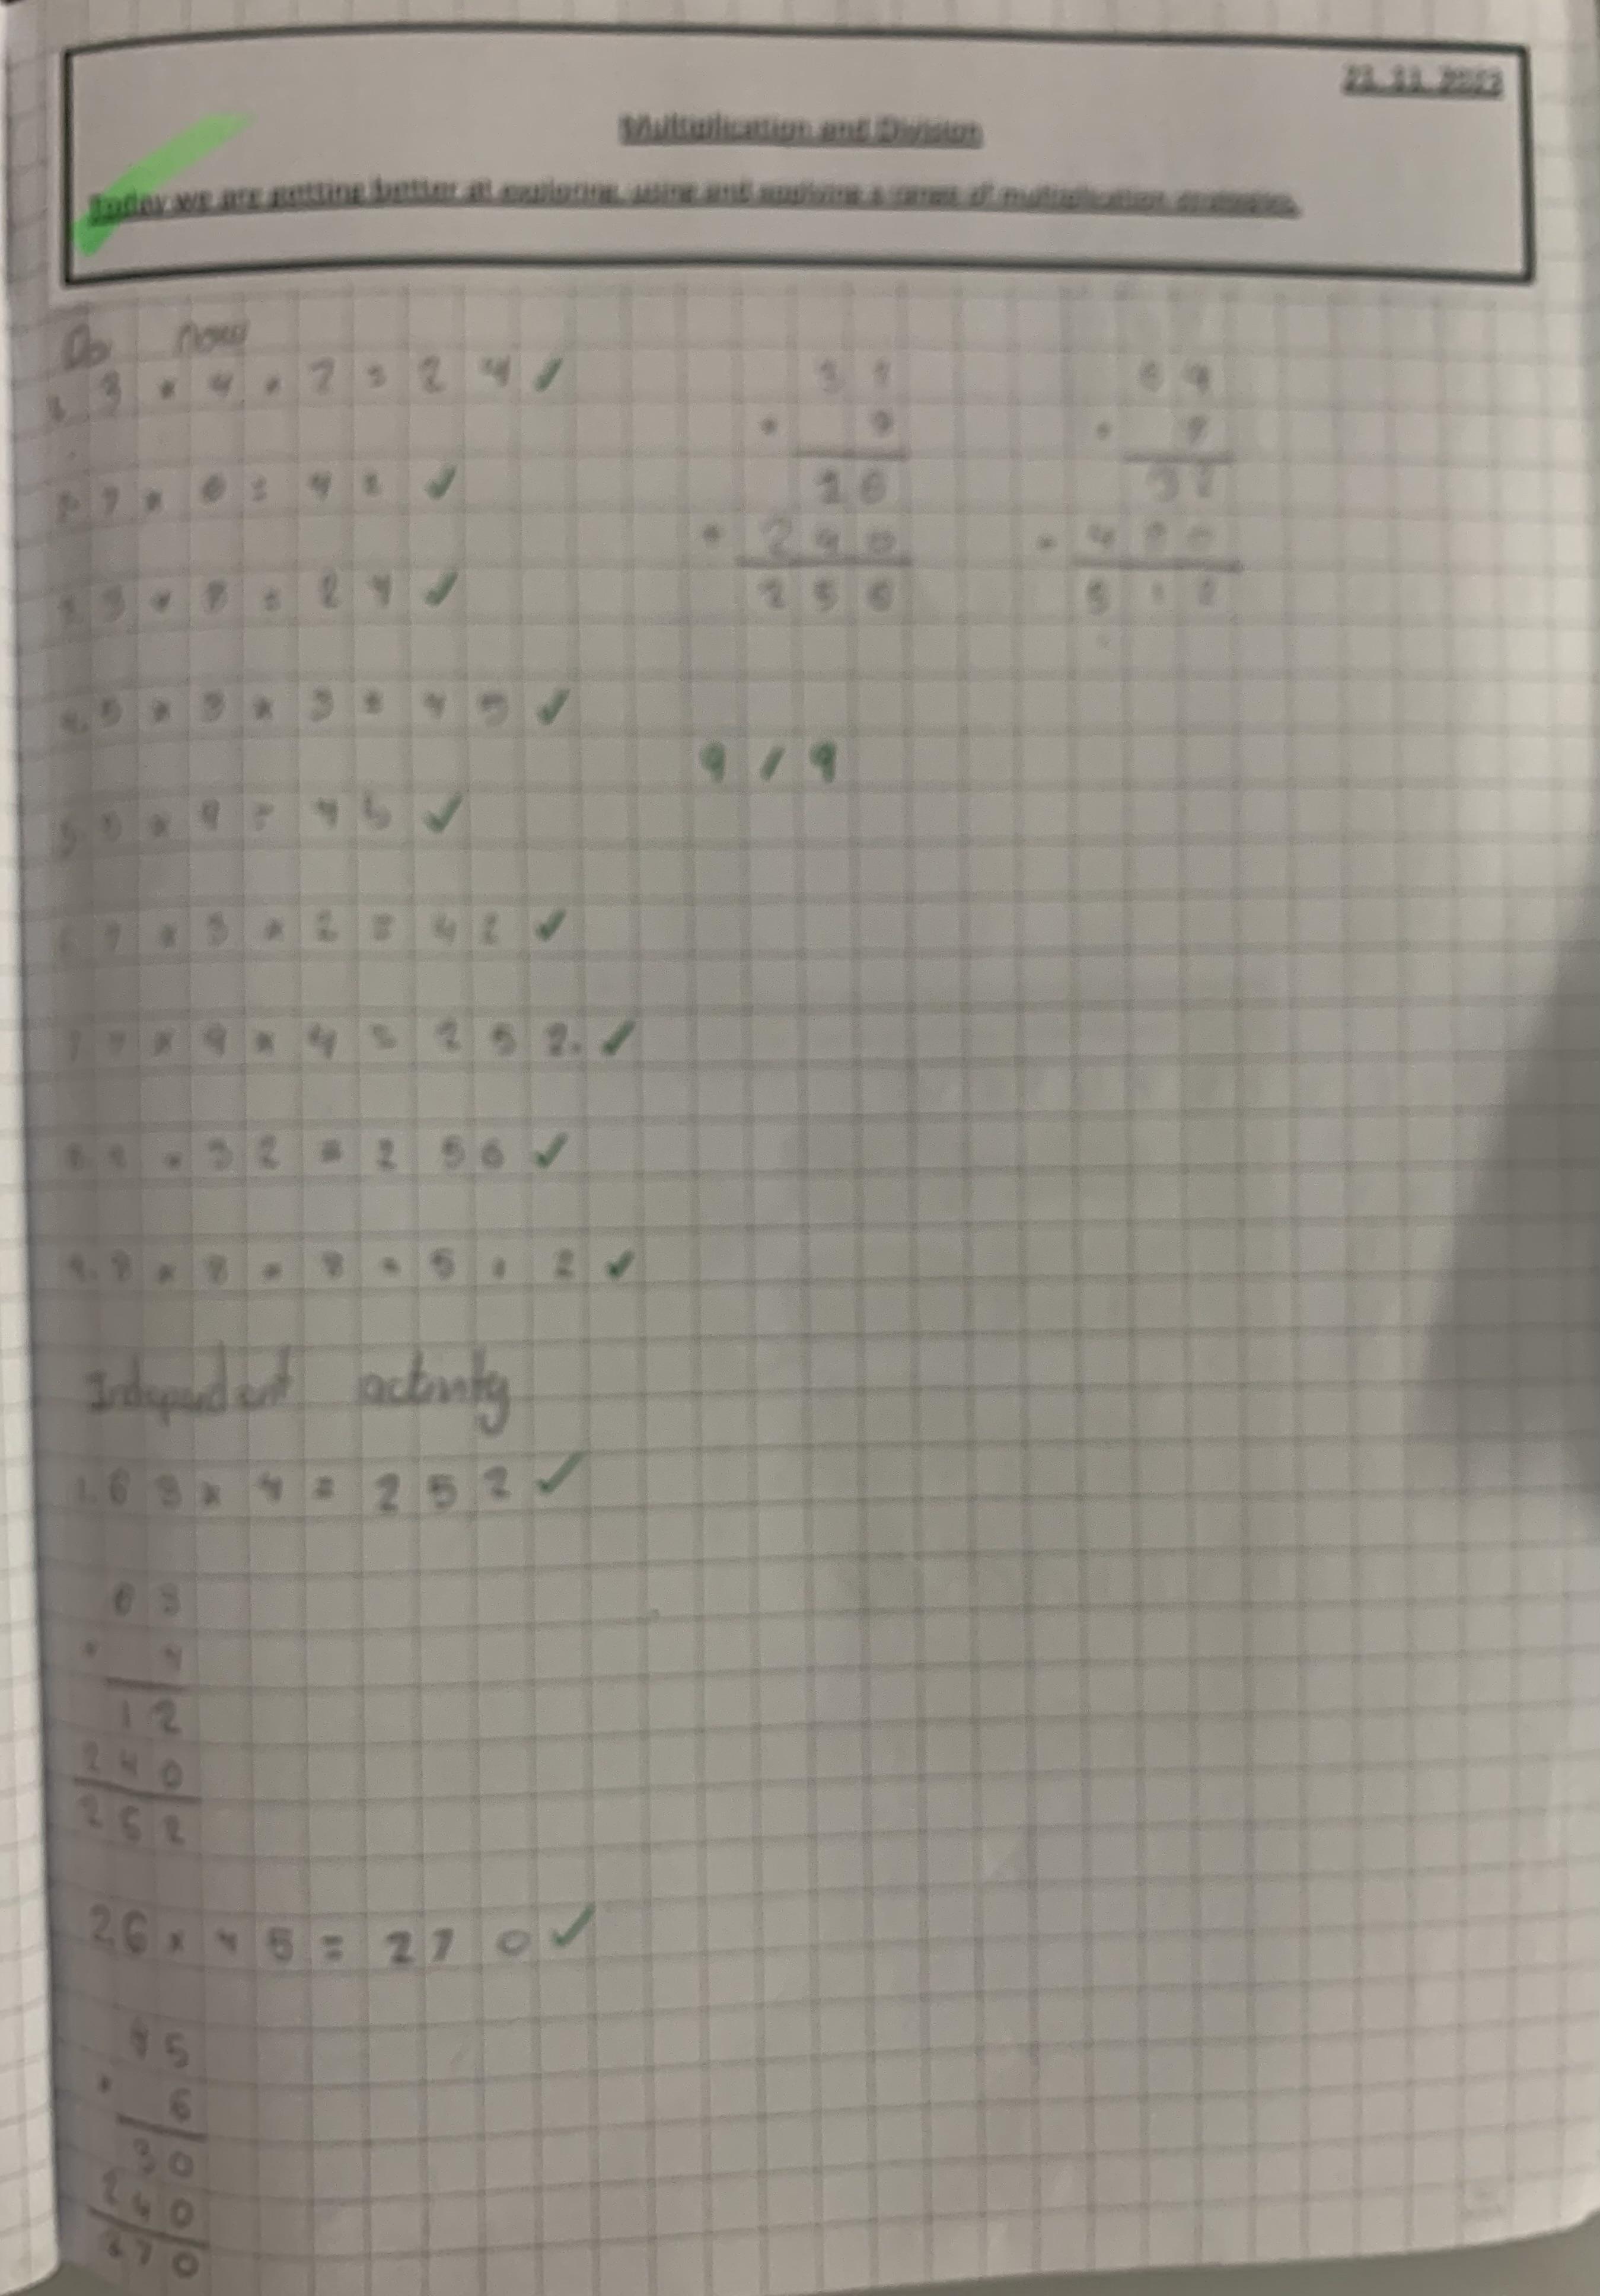 21.11.2022
Multiplication and Division
Today we are getting better at exploring, using and applying a range of multiplication strategies.
Do now
1. 3 × 4 × 2 = 24 ✓
2. 7 × 6 = 42 ✓
3. 3 × 8 = 24 ✓
4. 5 × 3 × 3 = 45 ✓
5. 5 × 9 = 45 ✓
6. 7 × 3 × 2 = 42 ✓
7. 7 × 9 × 4 = 252. ✓
8. 8 × 32 = 256 ✓
9. 8 × 8 × 8 = 512 ✓
32
× 8
16
+ 240
256
64
× 8
32
+ 480
512
9/9
Independent activity
1. 63 × 4 = 252 ✓
63
× 4
12
240
252
26 × 45 = 270 ✓
45
× 6
30
240
270